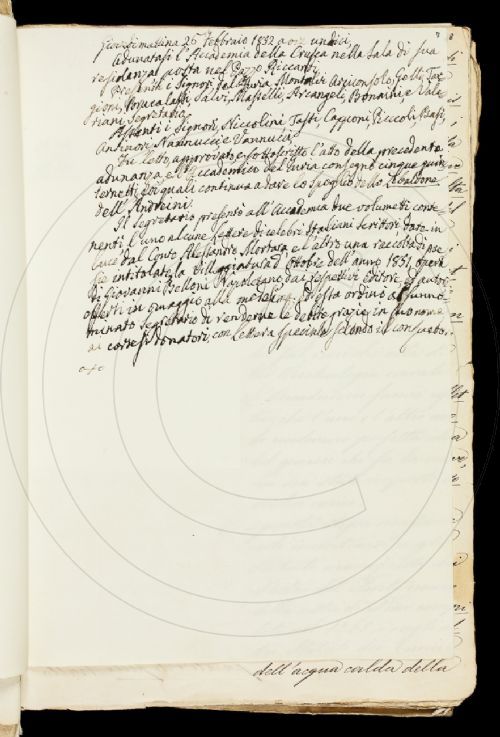 mattina 26 Febbraio 1832 a ore undici
Adunatasi l'Accademia della Crusca nella Sala di sua
residenza posta nel Palazzo Riccardi
Presenti i Signori Del Furia, Montalvi Arciconsolo, Gelli, Tar-
gioni, Brucalassi, Salvi, Masselli, Arcangeli, Bonaini, e Vale-
riani Segretario
Assenti i Signori, Niccolini Tasti Capponi, Piccoli
Antinori, Nannucci e Vannucci
Fu letto, approvato e sottoscritto l'atto della precedente
adunanza, e l'Accademico del Furia consegnò cinque quin-
ternetti, coi quali continua a dare lo spoglio dello Zibaldone
dell'Andreini.
Il segretario presentò all'Accademia due volumetti conte-
nenti l'uno alcune lettere di celebri italiani scrittori date in
luce dal Conte Alessandro Mortara, e l'altro una raccolta di poe-
sie intitolata la Villeggiatura d'Ottobre dell'anno 1831, opera
di Giovanni Belloni Napoletano, dai respettivi editore ed autore
offerti in omaggio alla medesima, e questa ordinò al funno-
minato segretario di renderne le debite grazie in suo nome
ai cortesi donatori, con lettera speciale secondo il consueto.
dell'acqua calda della